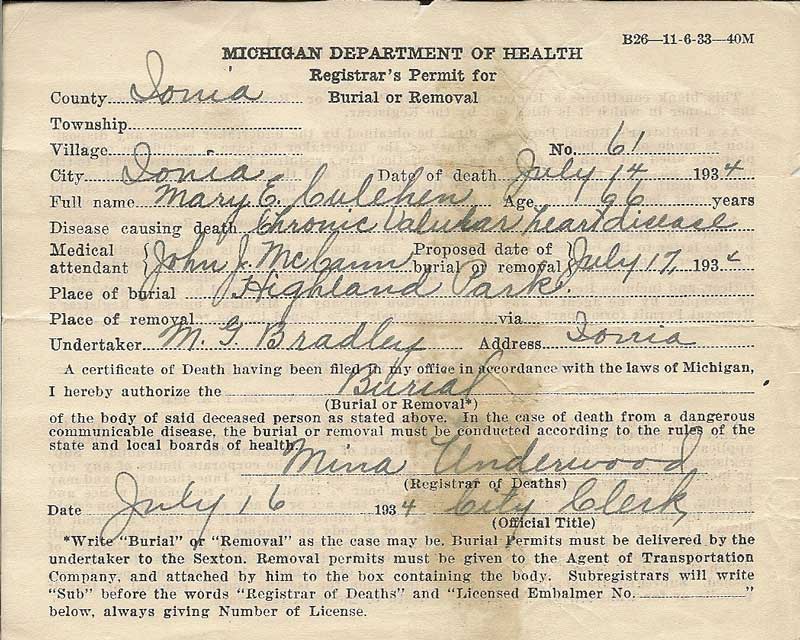 B26—11-6-33—40M
MICHIGAN DEPARTMENT OF HEALTH
Registrar's Permit for
County Ionia Burial or Removal
Township
Village No. 61
City Ionia Date of death July 14 1934
Full name Mary E. Culchen Age 96 years
Disease causing death Chronic Valvular heart disease
Medical attendant John J. McCann Proposed date of burial or removal July 17, 1934
Place of burial Highland Park.
Place of removal via
Undertaker M. G. Bradley Address Ionia
A certificate of Death having been filed in my office in accordance with the laws of Michigan,
I hereby authorize the Burial
(Burial or Removal*)
of the body of said deceased person as stated above. In the case of death from a dangerous
communicable disease, the burial or removal must be conducted according to the rules of the
state and local boards of health.
Mina Underwood
(Registrar of Deaths)
Date July 16 1934 City Clerk
(Official Title)
*Write "Burial" or "Removal" as the case may be. Burial Permits must be delivered by the
undertaker to the Sexton. Removal permits must be given to the Agent of Transportation
Company, and attached by him to the box containing the body. Subregistrars will write
"Sub" before the words "Registrar of Deaths" and "Licensed Embalmer No. "
below, always giving Number of License.